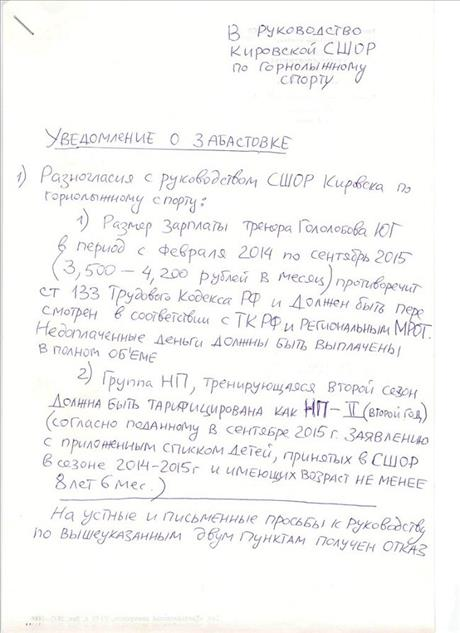 В РУКОВОДСТВО
КИРОВСКОЙ СШОР
ПО ГОРНОЛЫЖНОМУ
СПОРТУ.
УВЕДОМЛЕНИЕ О ЗАБАСТОВКЕ
1) Разногласия с руководством СШОР Кировска по
горнолыжному спорту:
1) Размер зарплаты тренера Гололобова ЮГ
в период с февраля 2014 по сентябрь 2015
(3,500 – 4,200 рублей в месяц) противоречит
ст 133 Трудового Кодекса РФ и должен быть пере
смотрен в соответствии с ТК РФ и региональным МРОТ.
Недоплаченные деньги должны быть выплачены
в полном об'ёме
2) Группа НП, тренирующаяся второй сезон
должна быть тарифицирована как НП-II (второй год)
(согласно поданному в сентябре 2015 г. заявлению
с приложенным списком детей, принятых в СШОР
в сезоне 2014-2015г и имеющих возраст не менее
8 лет 6 мес.)
На устные и письменные просьбы к руководству
по вышеуказанным двум пунктам получен отказ